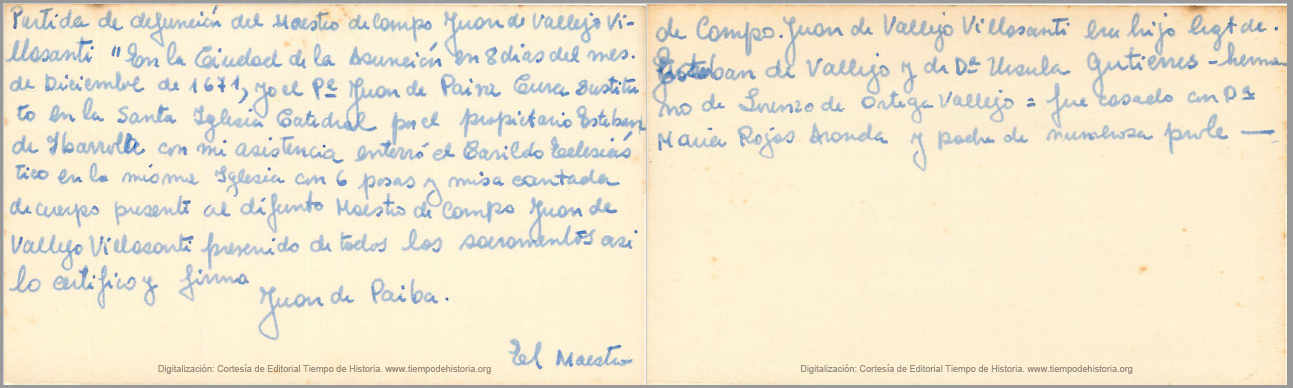 Partida de defunción del Maestro de Campo Juan de Vallejo Vi-
llasanti "En la Ciudad de la Asunción en 8 dias del mes.
de Diciembre de 1671, yo el Pe Juan de Paiva Cura Sustitu
to en la Santa Iglesia Catedral por el propietario Esteban
de Ibarrolla con mi asistencia enterró el Cavildo Eclesiás
tico en la misma Iglesia con 6 posas y misa cantada
de cuerpo presente al difunto Maestro de Campo Juan de
Vallejo Villasanti prevenido de todos los sacramentos asi
lo certifico y firma
Juan de Paiba.
El Maestro
Digitalización: Cortesía de Editorial Tiempo de Historia. www.tiempodehistoria.org
de Campo. Juan de Vallejo Villasanti era hijo legt de.
Esteban de Vallejo y de Da Ursula Gutierres - herma
no de Lorenzo de Ortega Vallejo = fue casado con Da
Maria Rojas Aranda y padre de numerosa prole —
Digitalización: Cortesía de Editorial Tiempo de Historia. www.tiempodehistoria.org